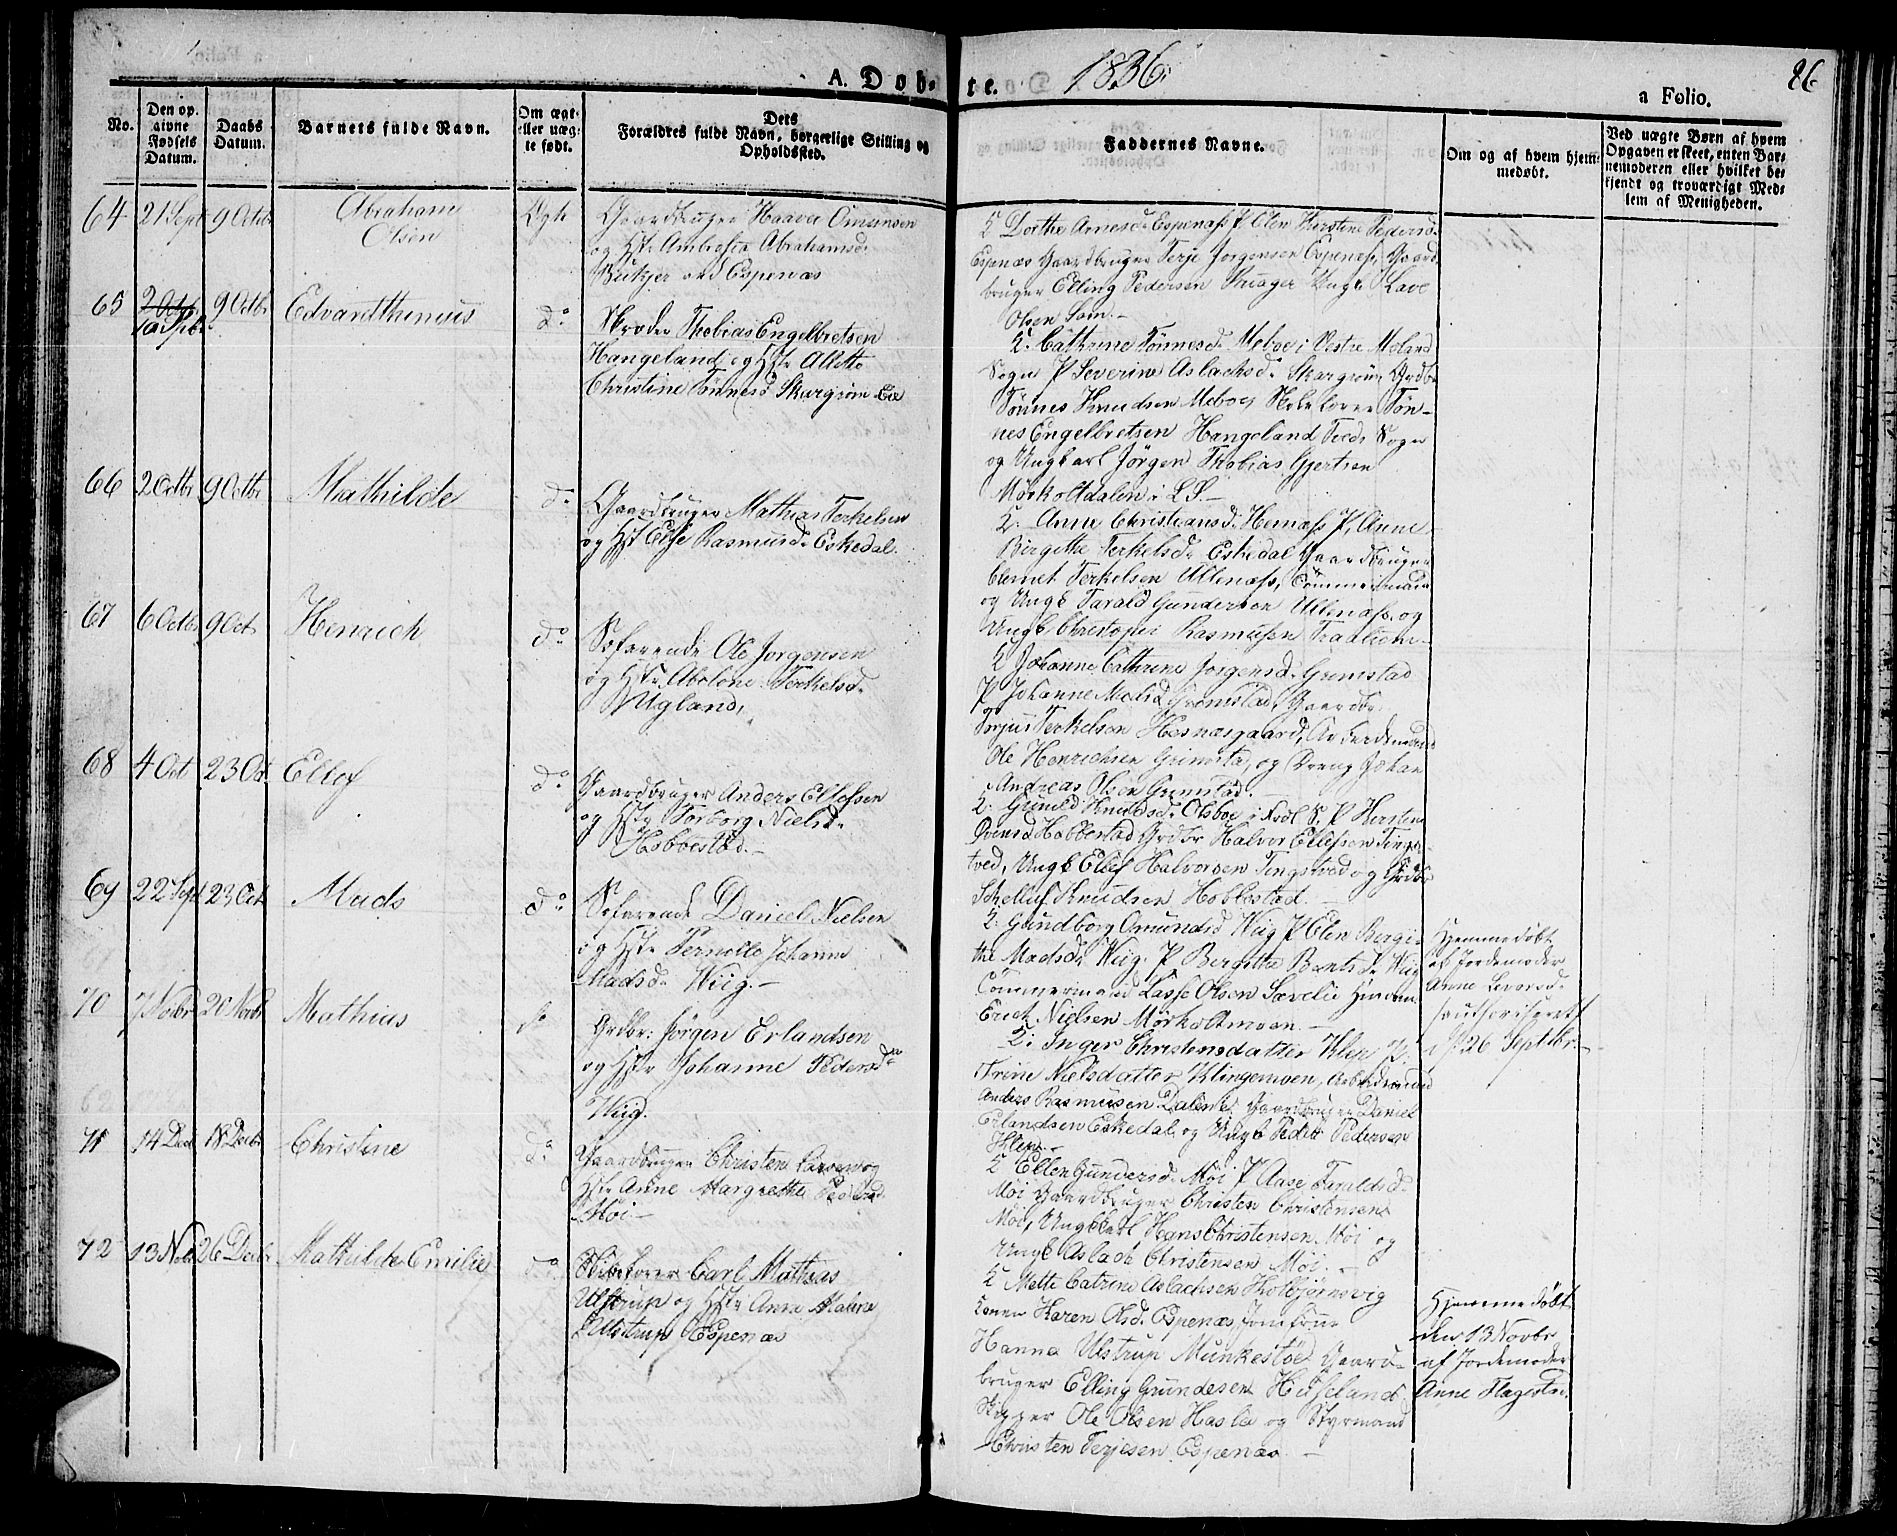 A. Døb-
te. 1836.
a Folio.
86
No.
Den op-
givne
Fødsels
Datum.
Daabs
Datum.
Barnets fulde Navn.
Om ægt-
eller uæg-
te født.
Dets
Forældres fulde Navn, borgerlige Stilling og
Opholdssted.
Faddernes Navne.
Om og af hvem hjem-
medøbt.
Ved uægte Børn af hvem
Opgaven er skeet, enten Bar-
nemoderen eller hvilket be-
kjendt og troværdigt Med-
lem af Menigheden.
64 21 Sept 9 Octbr Abraham
Olsen
Ægte
Gaardbruger Haaver Omunsen
og Hst: Ambrosia Abrahamsd:
Bukjer ved Espenæs
Dorthe Arnesd: Espenæs P Elen Kirstine Pedersd:
Espenæs Gaardbruger Terje Jørgensen Espenæs, Gaard
bruger Elling Pedersen Ungk Lave
Olsen Søm.-
65 2 Octb
10 Sptbr 9 Octbr Edvardthinius do
Skræder Thobias Engelbretsen
Hangeland og Hst: Alette
Christine Tønnesd: Skurgrøm Eie
Cathrine Tønnesd: Meboe i Vestre Moland
Sogn P Severine Aslachsd: Skargrøm, Grdbr
Tønnes Knudsen Meboe, Tøn-
nes Engelbretsen Hangeland Sogn
og Ungkarl Jørgen Thobias Gjertsen
Mørkoltdalen i L.S.-
66 2 Octbr 9 Octbr Mathilde do
Gaardbruger Mathias Terkelsen
og Hst: Else Rasmusd: Eskedal.
Anne Christiansd: Hesnæs P, Anne
Birgithe Terkelsd: Eskedal Gaardbruger
Clemet Terkelsen Ullenæss, Tømmermand
og Ungk Tarald Gundersen Ullenæss, og
Ungk Christopher Rasmussen
67 6 Octbr 9 Oct: Henrich do
Søfarende Ole Jørgensen
og Hst: Abelone Terkelsd:
Ugland,
Johanne Cathrine Jorgensd: Grimstad
P Johanne Madsd: Grimstad, Gaardbr:
Torjus Terkelsen Hesnæsgaard, Arbeidsmand
Ole Henrichsen Grimsta, og Dreng Johan
Andreas Olsen Grimstad.
68 4 Oct 23 Oct Ellef do
Gaardbruger Anders Ellefsen
og Hst: Torborg Nielsd:
Hobbestad.-
Gunild Knudsd: Olsboe i Fredl S. P Kirsten
Svensd: Hobbestad Grdbr Halvor Ellefsen Tings-
tved, Ungk Ellef Halvorsen Tingstved og Grdbr
Schelluf Knudsen Hobbestad.
69 22 Sept 23 Oct Mads do
Søfarende Daniel Nielsen
og Hst: Pernolle Johanne
Madsd: Wiig.-
Gundborg Omundsd Wiig P Elen Bergi-
the Madsd: Wiig. P Bergitha Bentsd: Wiig
Tømmermand Lasse Olsen Sævelie
Erich Nielsen Mørkoltmoen.
Hjemmedøbt
af Jordemoder
Anne Levorsd:
(authoriseret)
d 26 Septbr.-
70 7 Novbr 20 Novbr Mathias do
Grdbr: Jørgen Erlandsen
og Hst: Johanne Pedersd:
Wiig.
Inger Christensdatter Klep P.
Trine Nielsdatter Klingemoen, Arbeidsmand
Anders Rasmussen Dalene, Gaardbruger Daniel
Erlandsen Eskedal og Ungk Peder Pedersen
Klep.-
71 14 Dec 18 Decbr Christine do
Gaardbruger Christen Larsen og
Hst: Anne Margrethe Pedersd:
Møi.-
Ellen Gundersd: Møi P Aase Taraldsd:
Møi Gaardbruger Christen Christensen
Møi, Ungkarl Hans Christensen Møi og
Ungk Aslach Christensen Møi.-
72 13 Nov 26 Decbr Mathilde Emilie do
Skibsfører Carl Mathias
Ulstrup og Hst: Anne Malene
Ulstrup Espenæs
Mette Catrine Aslachsen Kolbjørnsvig
Konen Karen Olsd: Espenæs, Jomfrue
Hanna Ulstrup Munkestøe Gaard-
bruger Elling Gundesen Hæseland
Skipper Ole Olsen Haslia og Styrmand
Christen Terjesen Espenæs.-
Hjemmedøbt
den 13 Novbr
af Jordemoder
Anne Flagestad.